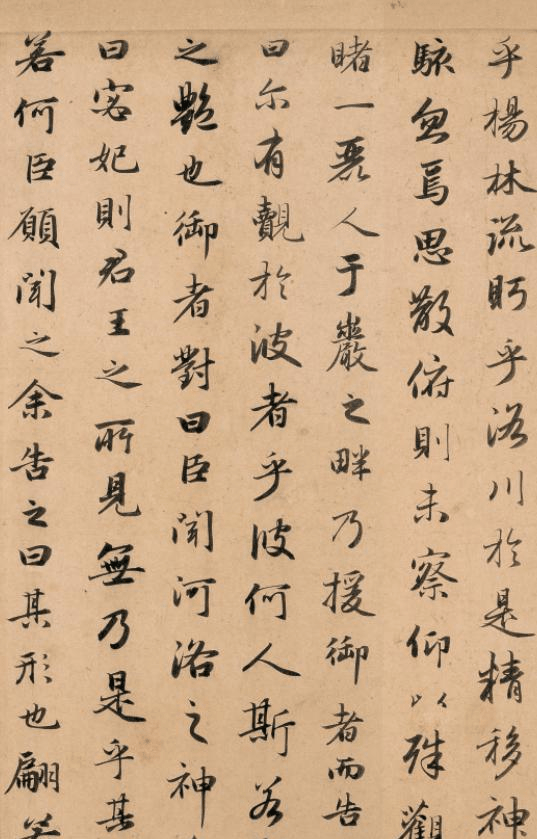 乎楊林流眄乎洛川於是精移神
駭忽焉思散俯則未察仰以殊觀
睹一麗人于巖之畔乃援御者而告
曰尔有覿於彼者乎彼何人斯若
之艷也御者對曰臣聞河洛之神
曰宓妃則君王之所見無乃是乎其
若何臣願聞之余告之曰其形也翩若